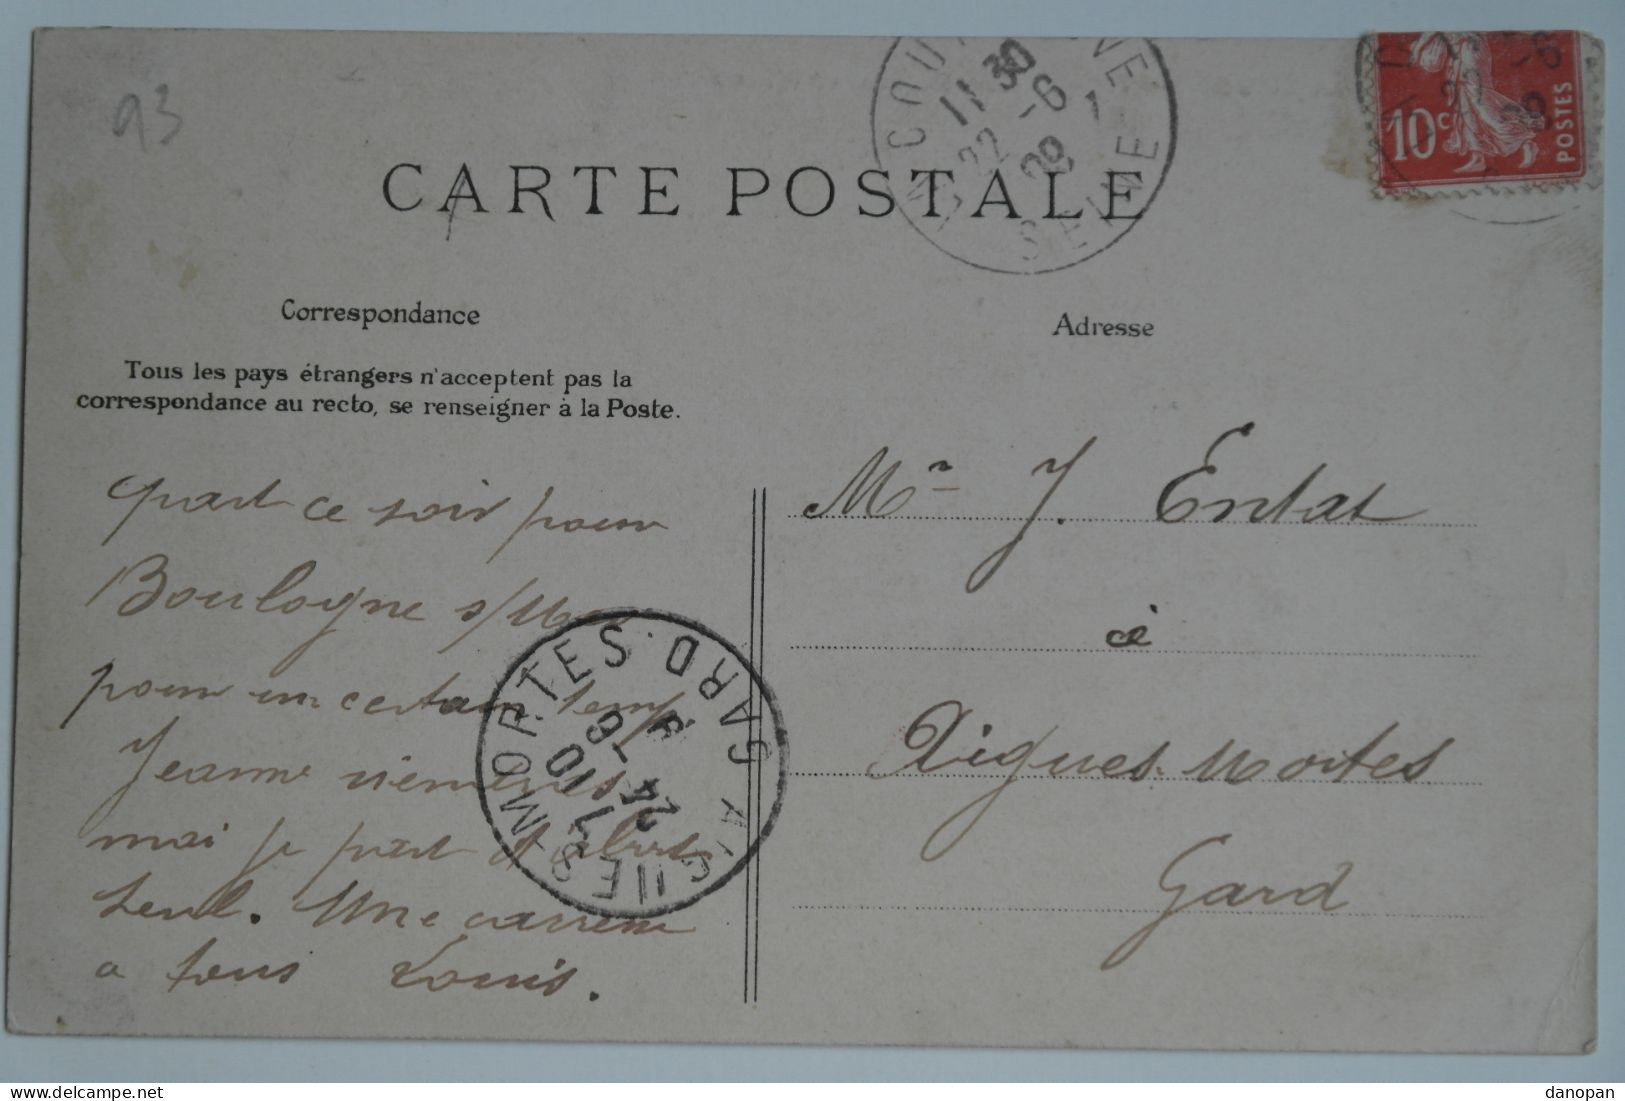 93
CARTE POSTALE
LA COURNEUVE
11 30
22 -6
09
SEINE
10c
POSTES
Correspondance
Adresse
Tous les pays étrangers n'acceptent pas la
correspondance au recto, se renseigner à la Poste.
part ce soir pour
Boulogne s/Mer
pour un certain temp
Jeanne
moi je part
seul. Une
a tous Louis.
AIGUES-MORTES
GARD
17 10
24 -6
Mr J. Entat
à
Aigues-Mortes
Gard
danopan